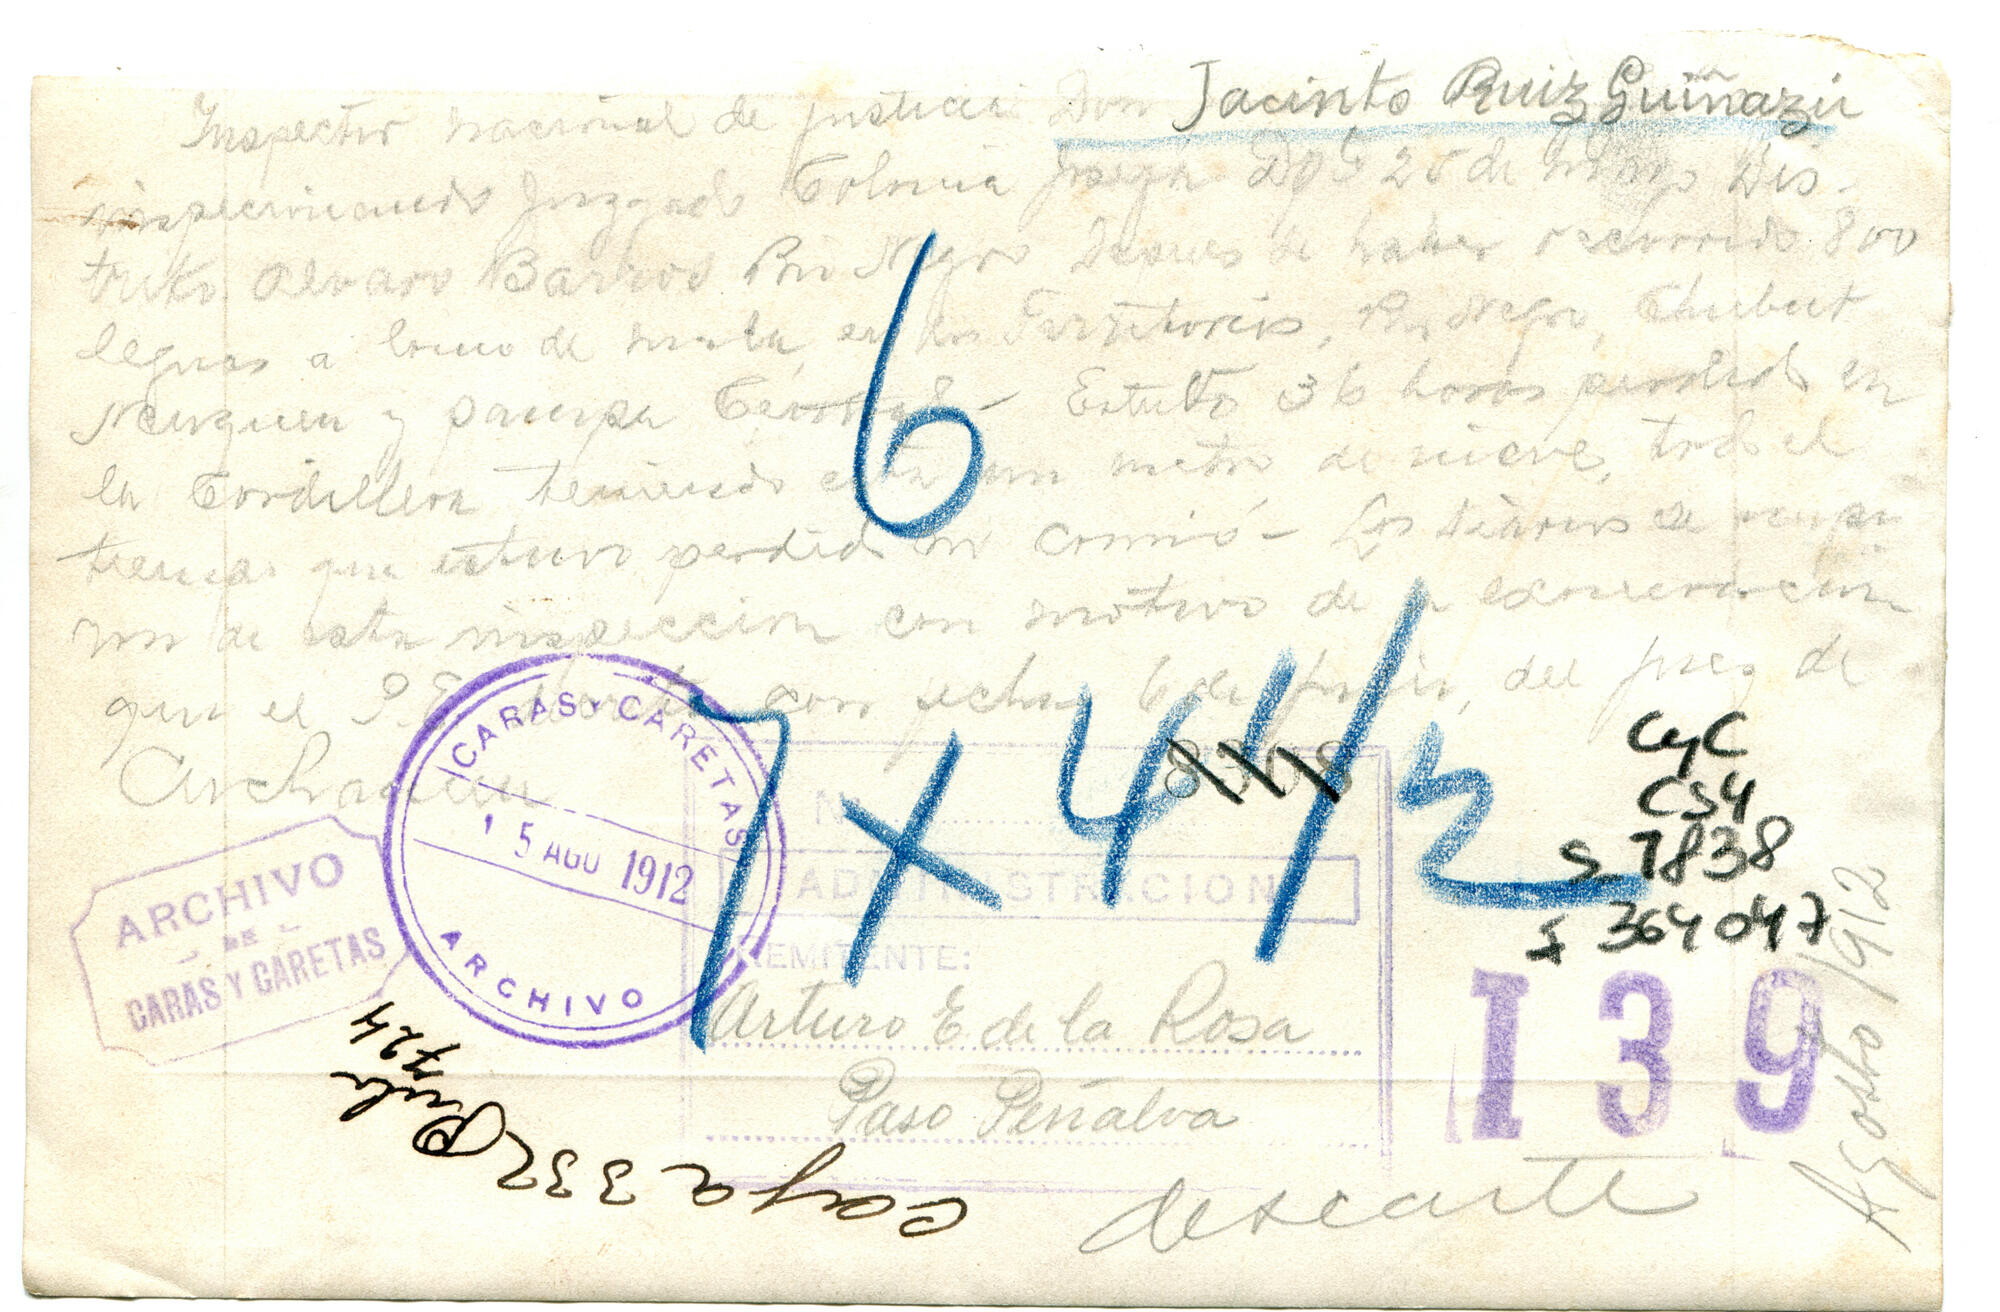 Inspector nacional de justicia Don Jacinto Ruiz Guiñazú
inspecionando Juzgado Colonia Josefa 25 de Mayo Dis-
trito Alvaro Barros Rio Negro Despues de haber recorrido 800
leguas a lomo de mula, en los Territorios, Rio Negro, Chubut
Neuquen y pampa Central - Estubo 36 horas perdido en
la Cordillera teniendo esta un metro de nieve, todo el
tiempo que estuvo perdido no comió - Los Diarios se
de esta inspeccion con motivo de exoneracion
que el P.E. con fecha 6 de del juez de
6
7 x 4 4/2
8308
CyC
CS4
S 7838
S 364047
CARAS Y CARETAS
15 AGO 1912
ARCHIVO
ARCHIVO
DE
CARAS Y CARETAS
ADMINISTRACION
REMITENTE:
Arturo E de la Rosa
Paso Peñalva
139
Agosto/912
caja 332
7724
descarte